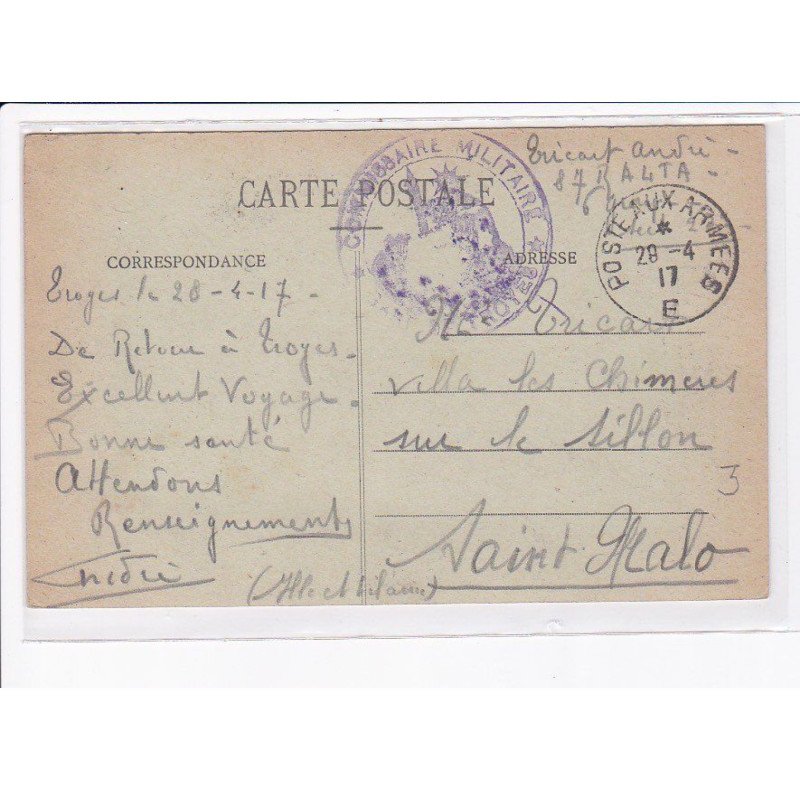 Tricart André -
87 R A L T A
CARTE POSTALE
COMMISSAIRE MILITAIRE
TROYES
POSTE AUX ARMEES
28-4
17
E
CORRESPONDANCE
ADRESSE
Troyes le 28-4-17-
De Retour à Troyes-
Excellent Voyage-
Bonne santé
Attendons
Renseignements
André
Tricart
villa les Chimères
sur le sillon
3
Saint-Malo
(Ille et Vilaine)